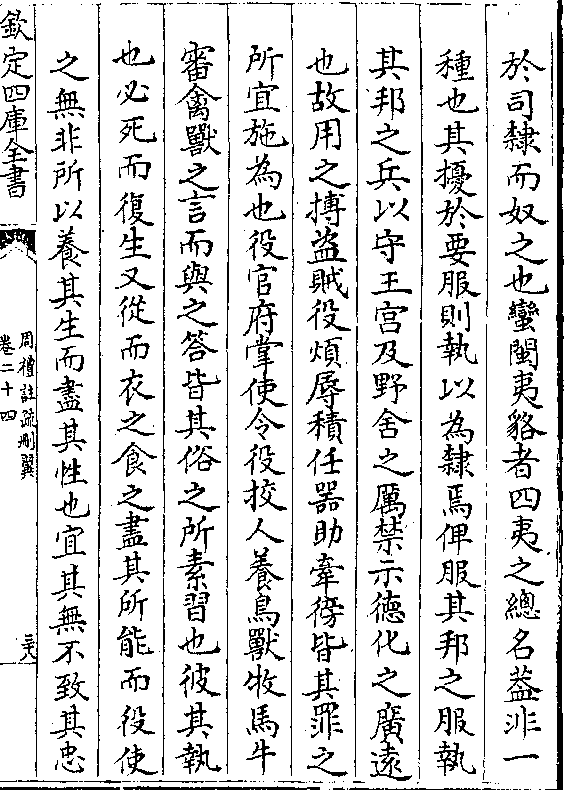 於司隸而奴之也蠻閩夷貉者四夷之總名葢非一
種也其擾於要服則執以為隸焉俾服其邦之服執
其邦之兵以守王宫及野舍之厲禁示徳化之廣逺
也故用之搏盗賊役煩辱積任器助牽徬皆其罪之
所宜施為也役官府掌使令役挍人養鳥獸牧馬牛
審禽獸之言而與之答皆其俗之所素習也彼其執
也必死而復生又從而衣之食之盡其所能而役使
之無非所以養其生而盡其性也宜其無不致其忠
欽定四庫全書
周禮註疏刪翼
卷二十四
三八